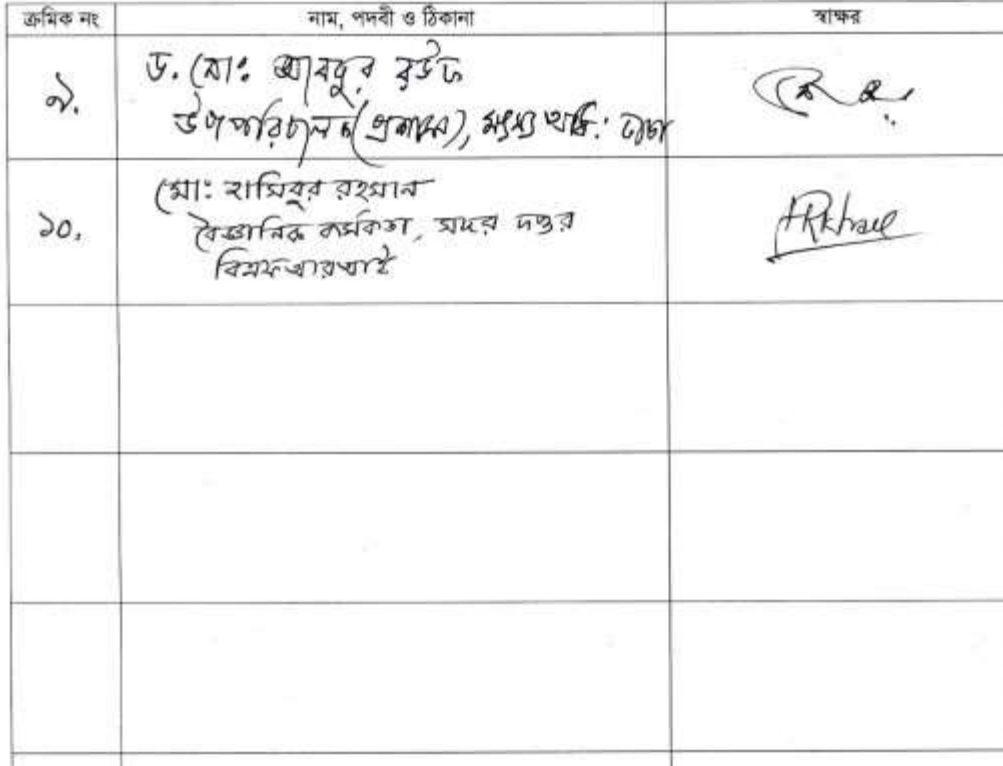 ক্রমিক নং নাম, পদবী ও ঠিকানা স্বাক্ষর
৯. ড. মোঃ আবদুর রউফ
উপপরিচালক (প্রশাসন), মৎস্য অধি: ঢাকা
১০. মো: হাসিবুর রহমান
বৈজ্ঞানিক কর্মকর্তা, সদর দপ্তর
বিএফআরআই